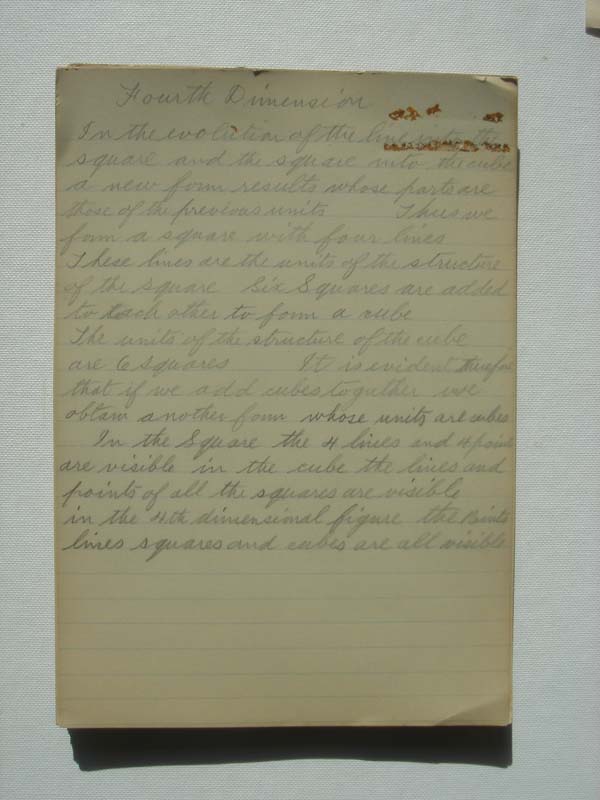 Fourth Dimension
In the evolution of the line into the
square and the square into the cube
a new form results whose parts are
those of the previous units Thus we
form a square with four lines
These lines are the units of the structure
of the square Six Squares are added
to each other to form a cube
The units of the structure of the cube
are 6 squares It is evident therefore
that if we add cubes together we
obtain another form whose units are cubes
In the Square the 4 lines and 4 points
are visible in the cube the lines and
points of all the squares are visible
in the 4th dimensional figure the Points
lines squares and cubes are all visible